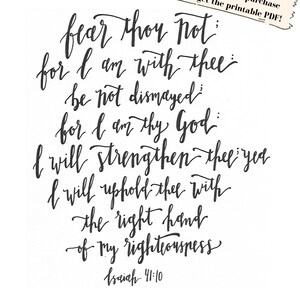 purchase
get the printable PDF!
fear thou not:
for I am with thee:
be not dismayed:
for I am thy God:
I will strengthen thee; yea
I will uphold thee with
the right hand
of my righteousness
Isaiah 41:10